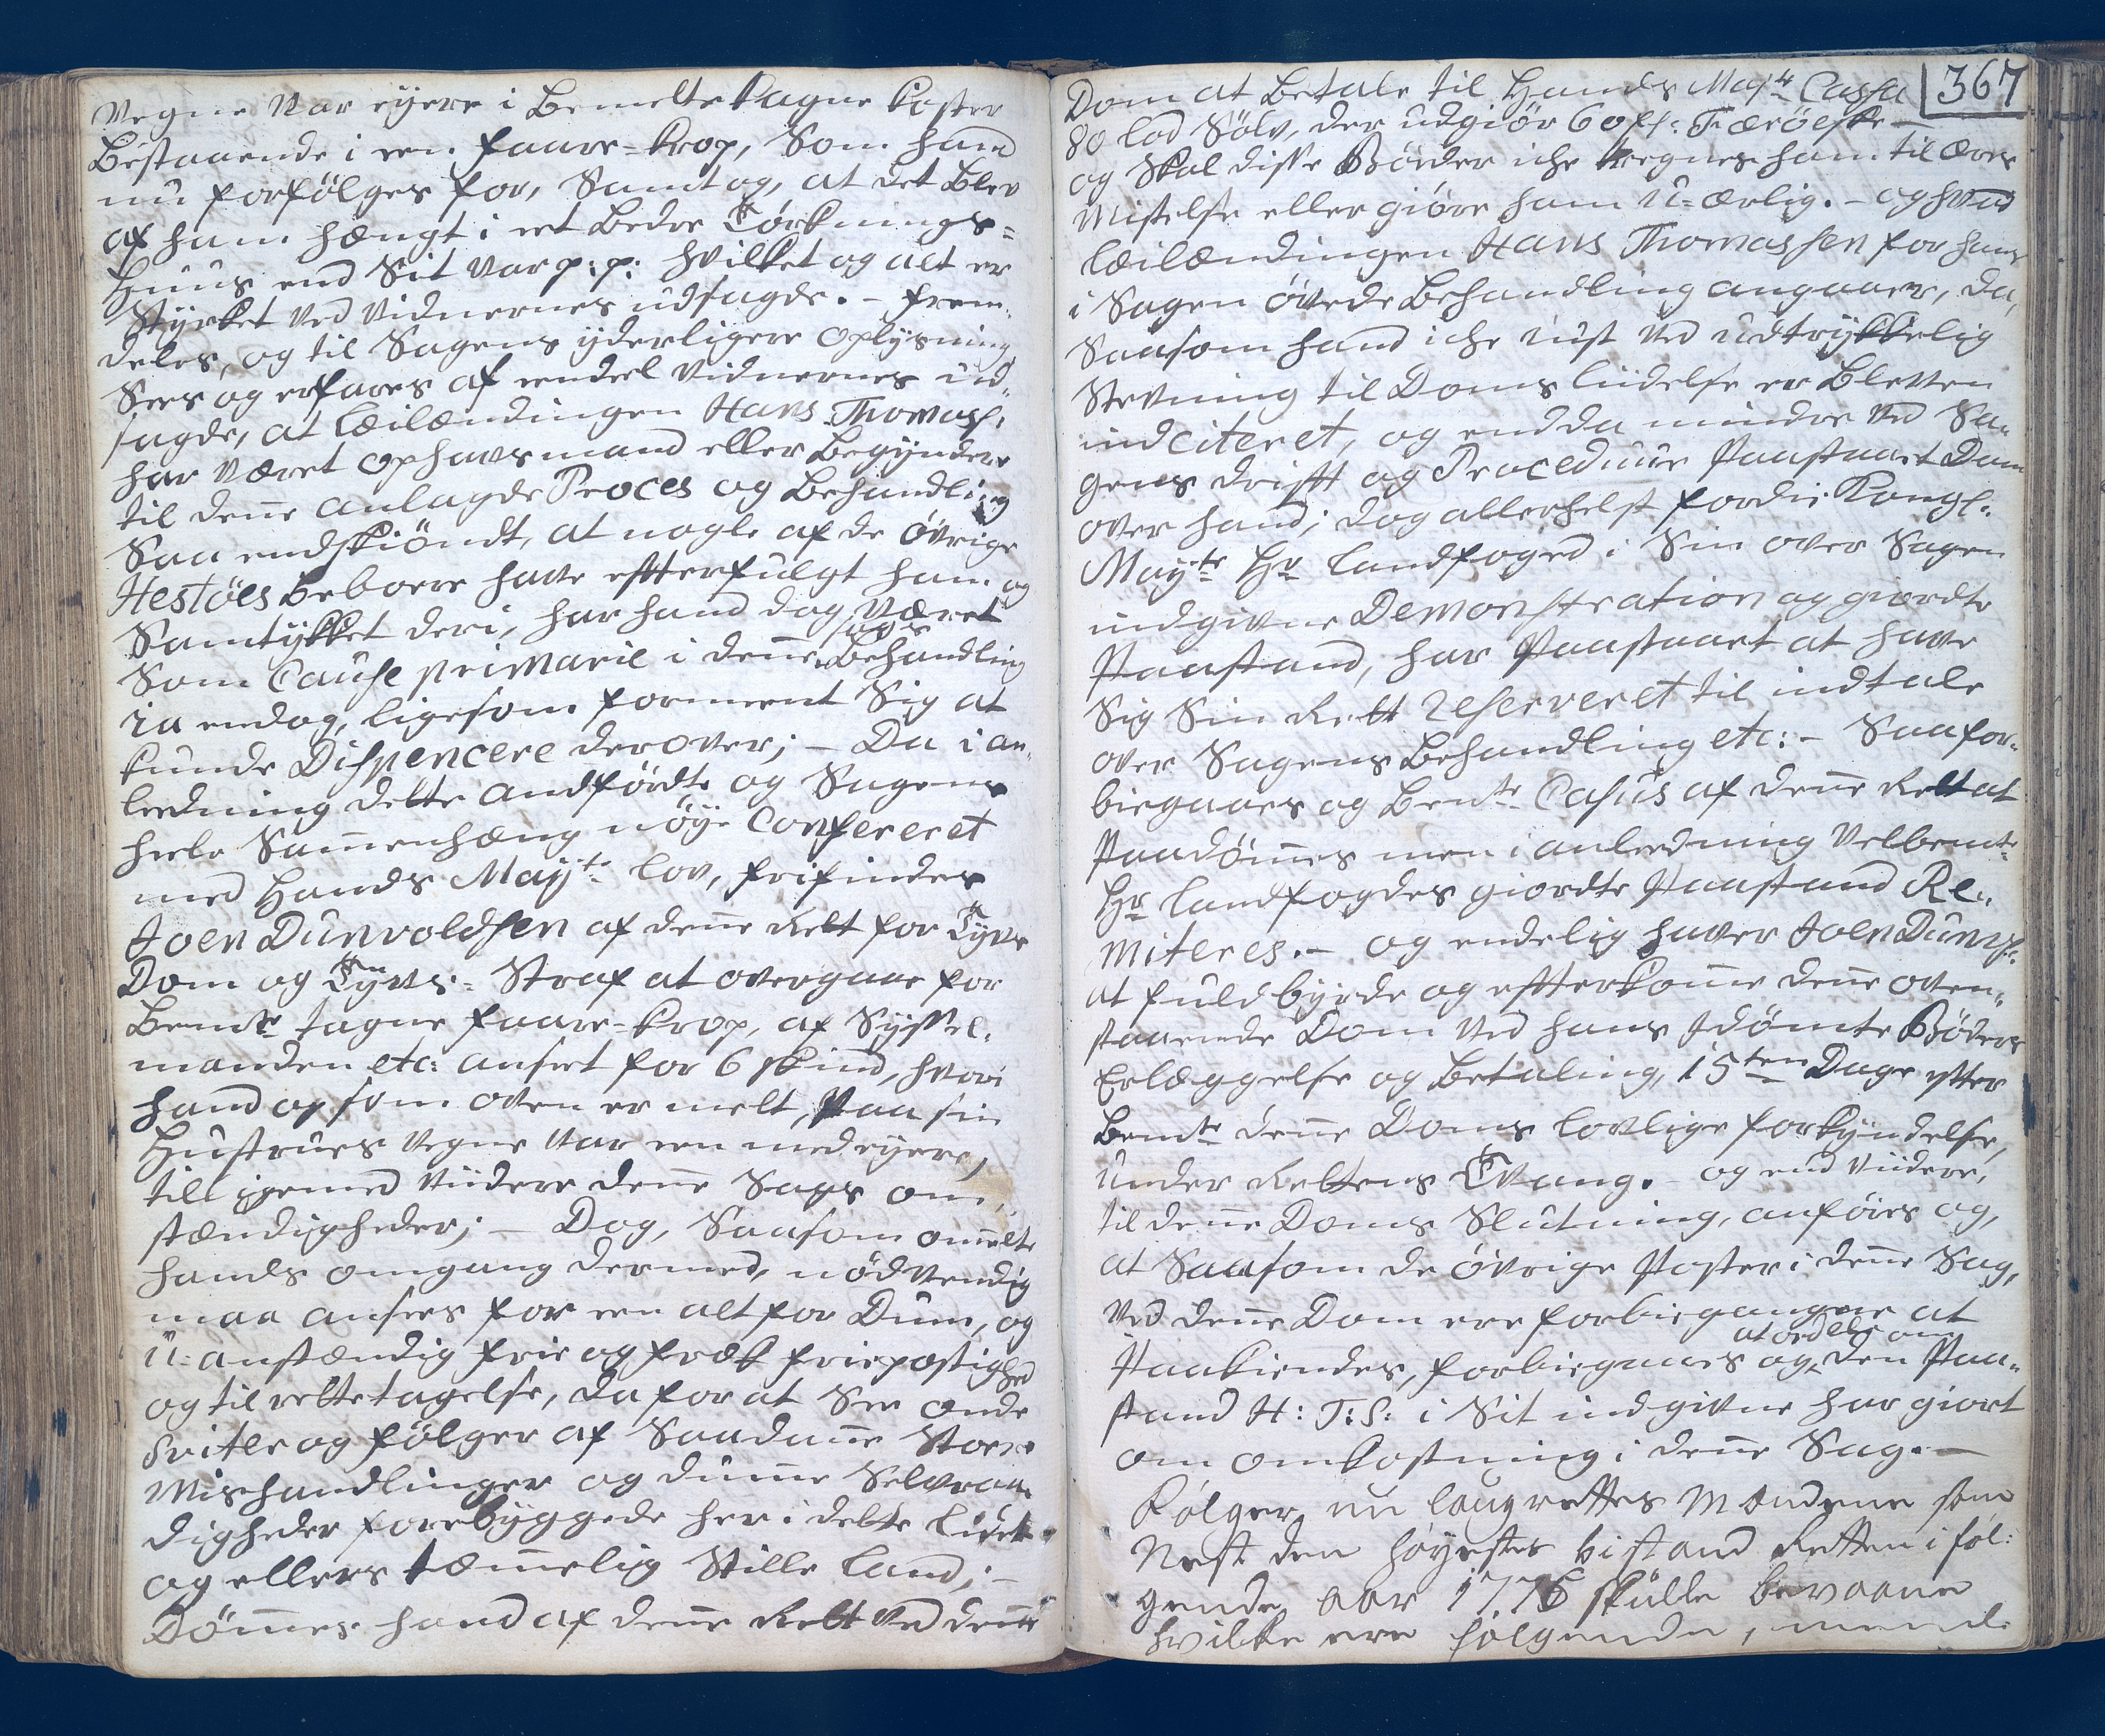 Vegne Var eÿere i Bemelte tagne koster
Bestaaende i een faare-krop, Som hand
nu forfölges for, Samt og, at det Blev
af ham hængt i et Bedre Törknings=
Huus end Sit Var p: p: hvilket og alt er
Stÿrket Ved Vidnernes udsagde. – frem¬
deles, og til Sagens ÿderligere oplÿsning
Sees og erfares af eendeel Vidnernes ud¬
sagde, at Leilændingen Hans Thomass:
har Været ophavsmand eller Begÿndere
til denne anlagde Proces og Behandling
Saa endskiöndt, at nogle af de övrige
Hestöes beboere have effterfulgt ham og
Samtÿkket deri, har hand dog Været
Som Cause primarie i denne Sags Behandling
ia endog, ligesom formeent Sig at
kunde Dispencere derover; – Da i an¬
ledning dette andfördte og Sagens
heele Sammenhæng nöÿe Confereret
med Hands Maÿts: Lov, frifindes
Joen Dunvoldsen af denne Rett for Tÿvs
Dom og Tÿvs= Straf at overgaae for
Bemte tagne faare-krop, af Sÿssel¬
manden etc: anseet for 6 skind, hvori
hand og som oven er melt, Paa sin
Hustrues Vegne Var een medeÿere,
till igemed Viidere denne Sags om¬
stændigheder; – Dog, Saasom ommelte
hands omgang dermed, nödvendig
maa ansees for een alt for Dum, og
U=anstændig frie og fræk friepostighed
og til rette tagelse, da for at See onde
Sviter og fölger af Saadanne Store
Mishandlinger og dumme Selvraa¬
digheder forebÿggede her i dette Lidet
og ellers temmelig Stille Land; –
Dömmes hand af denne Rett Ved denne
367
Dom at Betale til Hands Maÿts Cassa
80 lod Sölv, der udgiör 60 fs: Færöeske –
og Skal disse Böeder iche regnes ham til æres
Mistelse eller giöre ham U=ærlig. – og hvad
Leilændingen Hans Thomassen for hans
i Sagen övede Behandling angaaer, da,
Saasom hand iche iust Ved udtrÿkkelig
Stevning til Doms Liidelse er Bleven
indciteret, og endda mindre Ved Sa¬
gens drifft og Proceduur Paastaaet Dom
over hand; dog allerhelst fordi Kongl:
Maÿts Hr Landfoged i Sin over Sagen
indgivne Demonstration og giordte
Paastand, har Paastaaet at have
Sig Sin Rett reserveret til indtale
over Sagens Behandling etc: – Saa for¬
biegaaes og Bemte Casus af denne Rett at
Paadömmes men i anledning Velbemte
Hr Landfogdes giordte Paastand Re¬
miteres. – og endelig haver Joen Dunvs:
at fuldbÿrde og effterkomme denne oven¬
staaende Dom Ved hans Idömte Böders
Erlæggelse og Betaling, 15ten Dage efter
Bemte denne Doms lovlige forkÿndelse,
under Rettens Tvang. – og end Viidere,
til denne Doms Slutning, anföres og,
at Saasom de övrige Poster i denne Sag,
Ved denne Dom ere forbiegangne at
Paakiendes, forbiegaaes og at ordele om den Paa¬
stand H: T: S: i Sit indgivne har giort
om omkostning i denne Sag. –
Fölger nu Laugrettes Mændene som
Nest den höÿestes bistand Retten i föl:
gende aar 1776 skulle bevaane
hvilke ere fölgende,